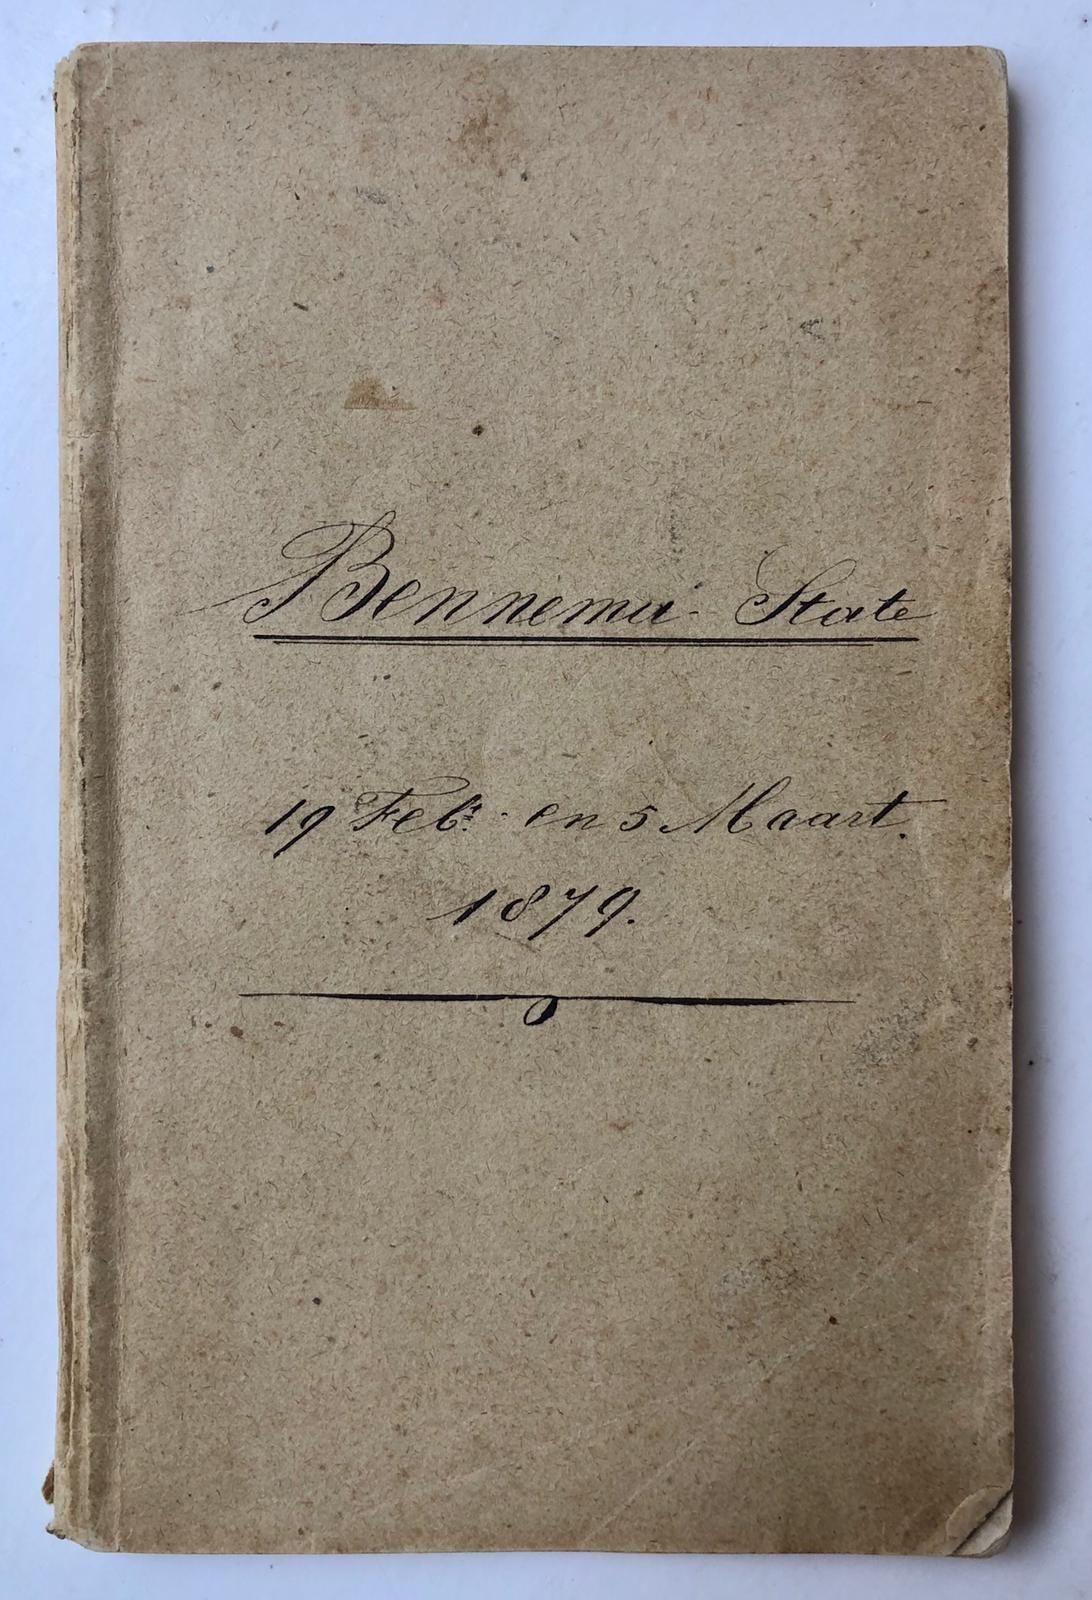 Bennema-State
19 Feb.r en 5 Maart.
1879.